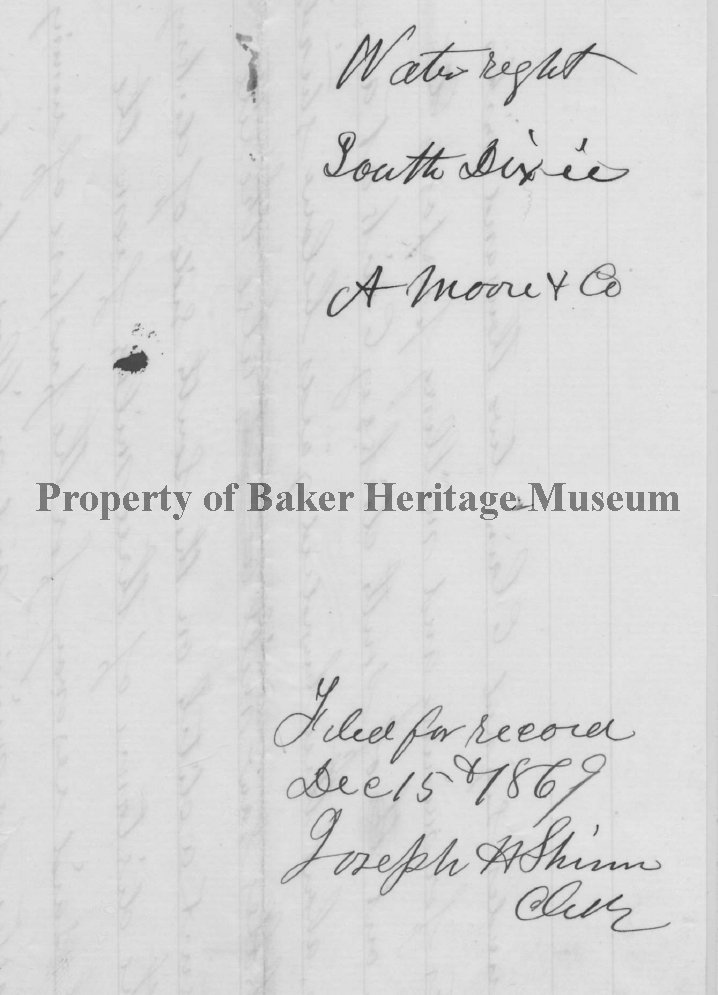 Water right
South Dixie
A Moore & Co
Property of Baker Heritage Museum
Filed for record
Dec 15th 1869
Joseph H Shinn
Clerk